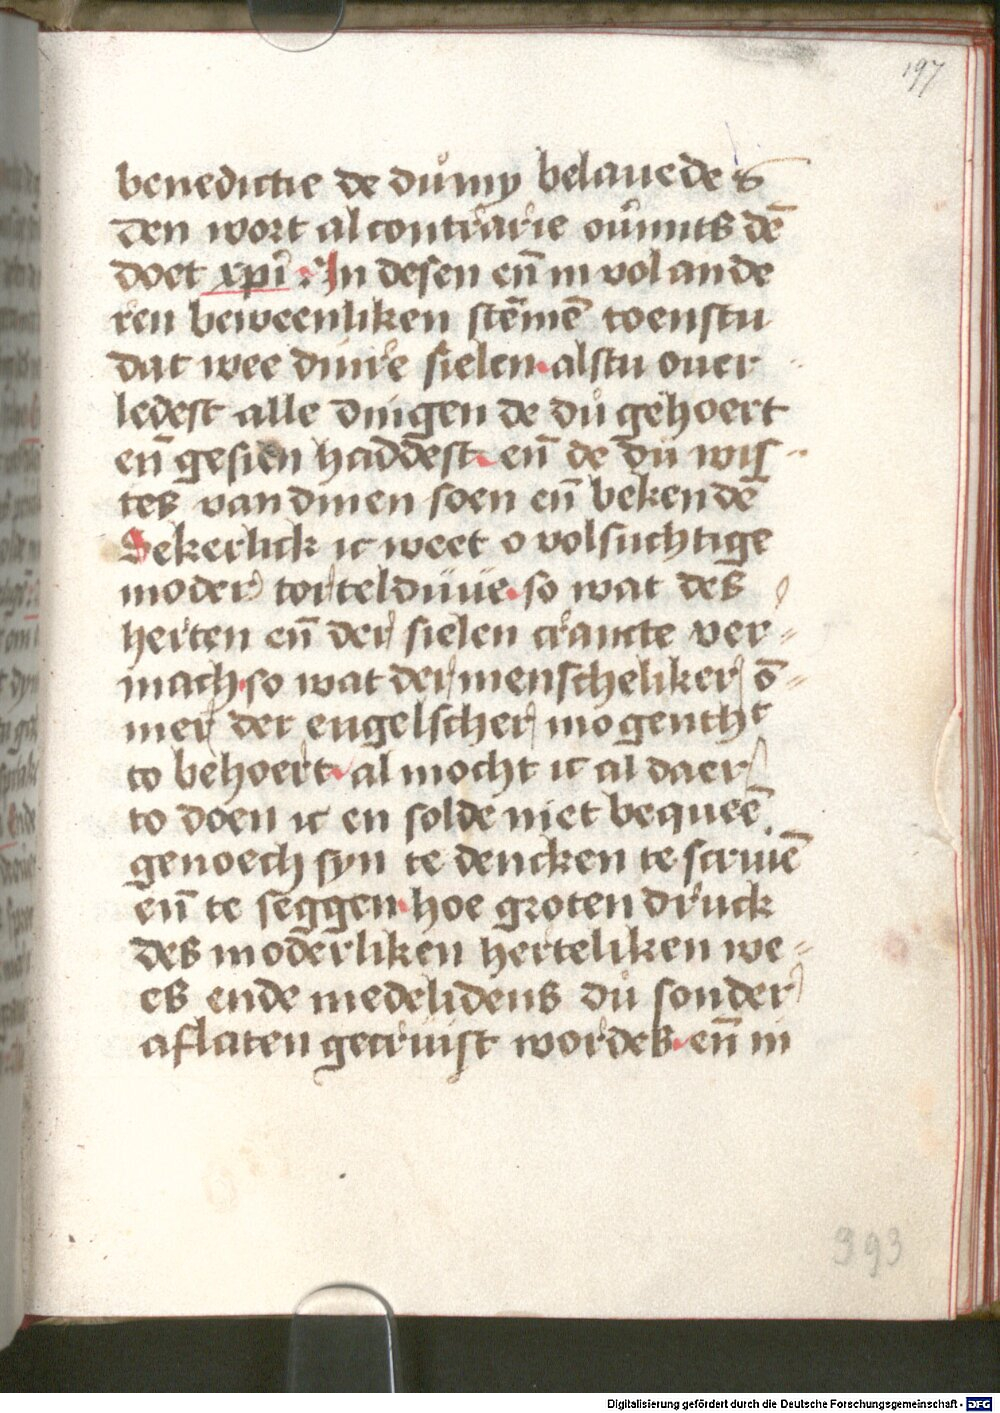 197
benedictie de dů my belauede s
den wort al contrarie oůmits dē
doet xpi̅ : In desen en̅ in vol ande
ren beweenliken stēmē toenstu
dat wee dinre sielen · alstu ouer
ledest alle dingen de dů gehoert
en̅ gesien haddest · en̅ de dů wis
tes van dinen soen en̅ bekende
Sekerlick ic weet o volsuchtige
moder torteldůůe · so wat des
herten en̅ der sielen crancte ver-
mach · so wat der menscheliker o̅-
mer der engelscher mogentht
to behoert · al mocht ic al daer
to doen ic en solde niet bequeē
genoech syn te dencken te scriuē
en̅ te seggen · hoe groten druck
des moderliken herteliken we-
es ende medelidens dů sonder
aflaten getruist wordes · en̅ in
393
Digitalisierung gefördert durch die Deutsche Forschungsgemeinschaft - DFG